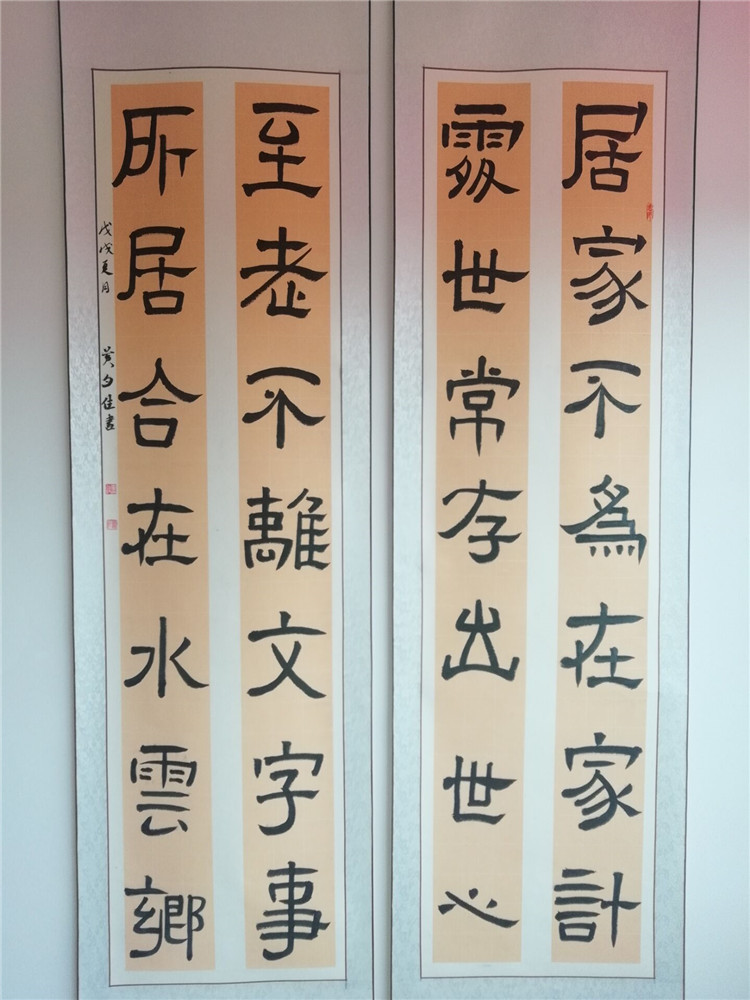 居家不爲在家計
處世常存出世心
至老不離文字事
所居合在水雲鄉
戊戌夏月 黄夕佳書